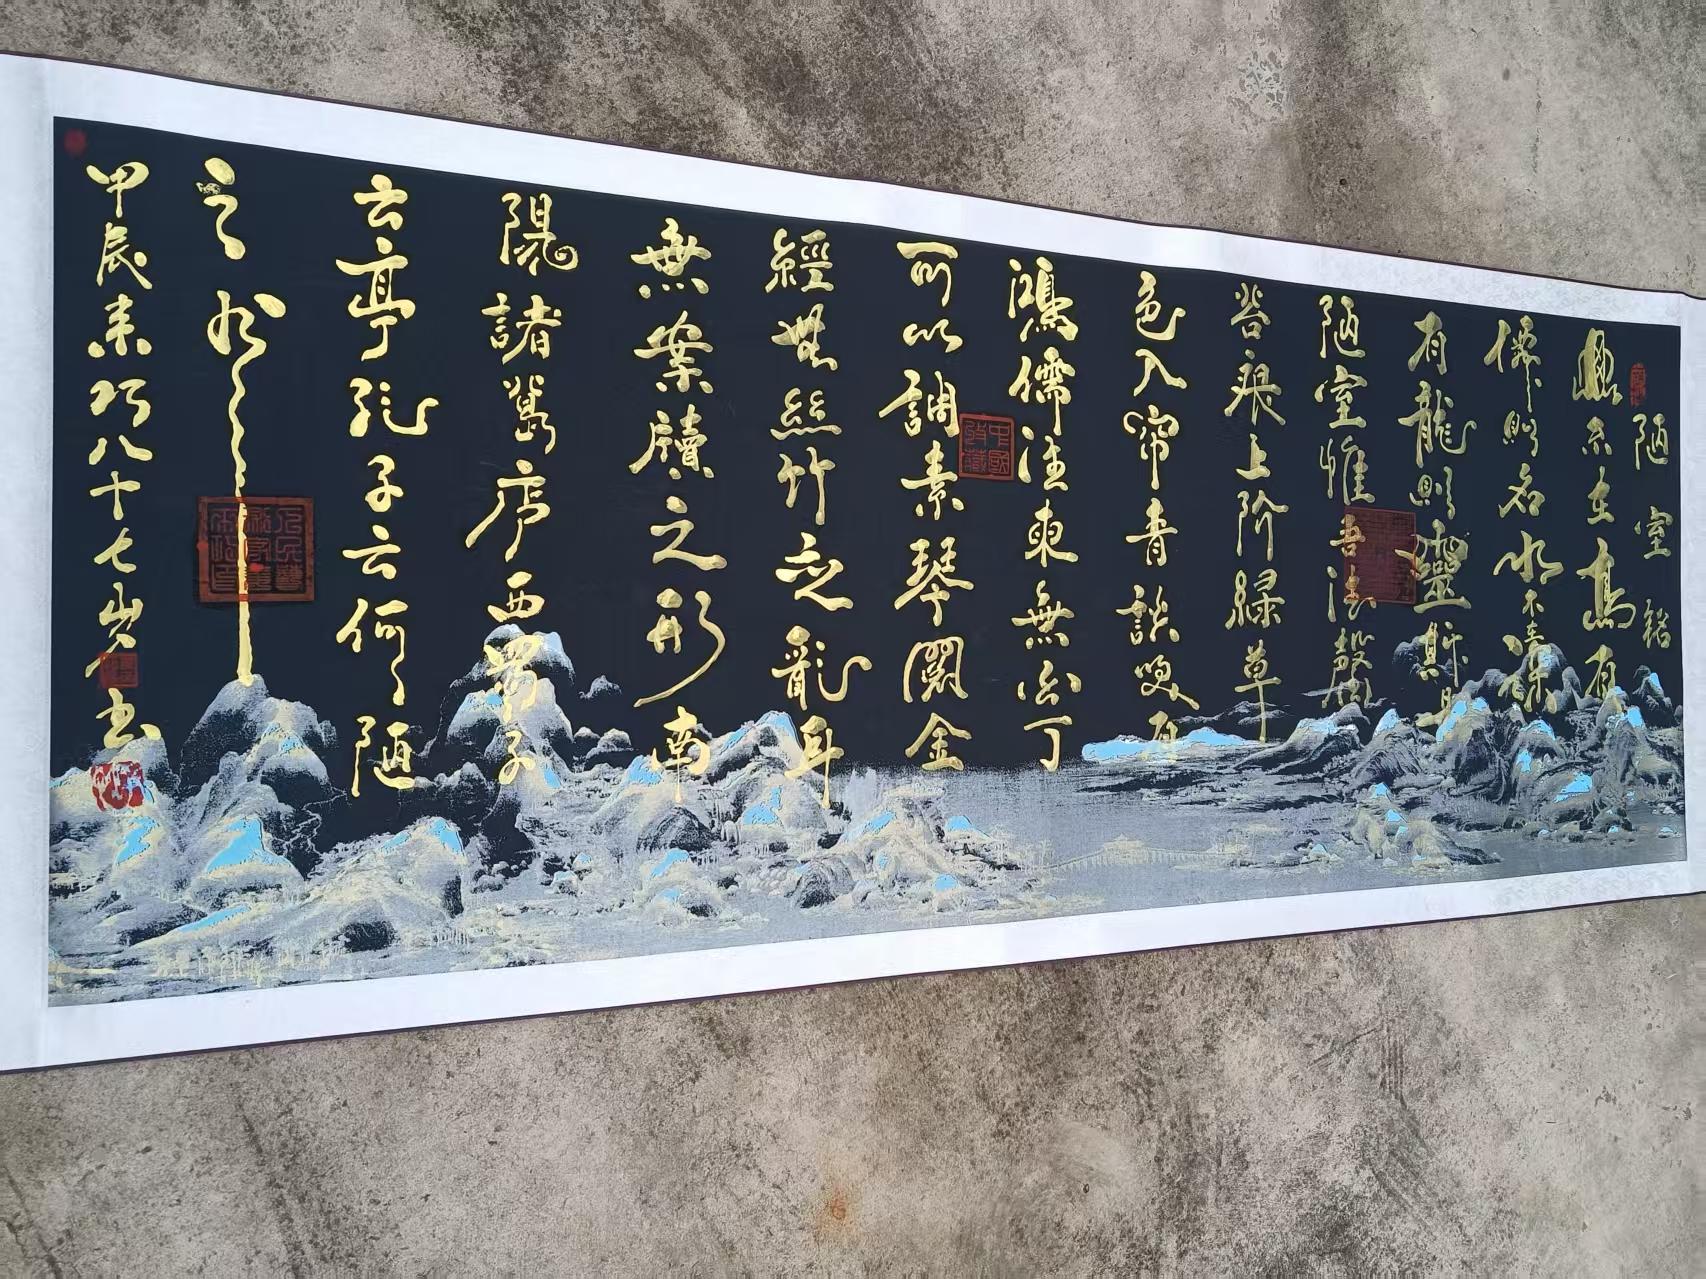 陋室銘
不在高有
僊則名水不在深
有龍則靈斯是
陋室惟吾德馨
苔痕上阶緑草
色入帘青談笑有
鴻儒往來無白丁
可以調素琴閱金
經無絲竹之亂耳
無案牘之形南
陽諸葛庐西蜀子
云亭孔子云何陋
之有
甲辰八十七岁书